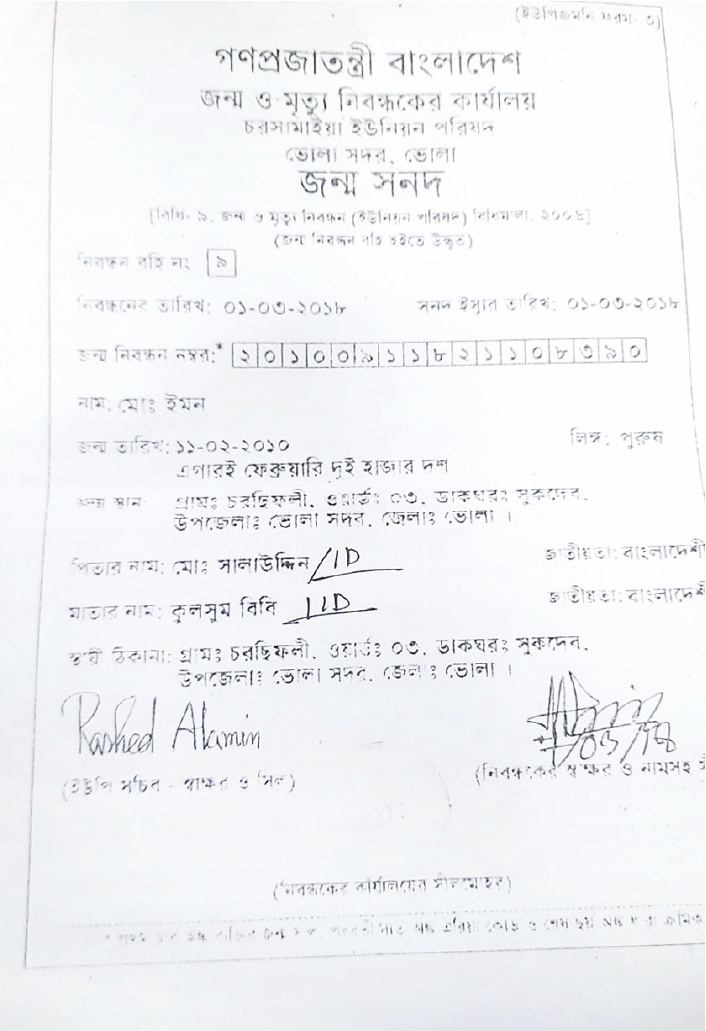 (ইউপিজমনি ফরম- ৩)
গণপ্রজাতন্ত্রী বাংলাদেশ
জন্ম ও মৃত্যু নিবন্ধকের কার্যালয়
চরসামাইয়া ইউনিয়ন পরিষদ
ভোলা সদর, ভোলা
জন্ম সনদ
[বিধি- ৯, জন্ম ও মৃত্যু নিবন্ধন (ইউনিয়ন পরিষদ) বিধিমালা, ২০০৬]
(জন্ম নিবন্ধন বহি হইতে উদ্ধৃত)
নিবন্ধন বহি নং ৯
নিবন্ধনের তারিখ: ০১-০৩-২০১৮ সনদ ইস্যুর তারিখ: ০১-০৩-২০১৮
জন্ম নিবন্ধন নম্বর:* ২০১০০৯১১৮২১১০৮৩৯০
নাম: মোঃ ইমন
জন্ম তারিখ: ১১-০২-২০১০ লিঙ্গ: পুরুষ
এগারই ফেব্রুয়ারি দুই হাজার দশ
জন্ম স্থান: গ্রামঃ চরছিফলী, ওয়ার্ডঃ ০৩, ডাকঘরঃ সুকদেব,
উপজেলাঃ ভোলা সদর, জেলাঃ ভোলা ।
পিতার নাম: মোঃ সালাউদ্দিন /ID জাতীয়তা: বাংলাদেশী
মাতার নাম: কুলসুম বিবি /ID জাতীয়তা: বাংলাদেশী
স্থায়ী ঠিকানা: গ্রামঃ চরছিফলী, ওয়ার্ডঃ ০৩, ডাকঘরঃ সুকদেব,
উপজেলাঃ ভোলা সদর, জেলাঃ ভোলা ।
Rasheed Alamin
(ইউপি সচিব - স্বাক্ষর ও সিল) (নিবন্ধকের স্বাক্ষর ও নামসহ
(নিবন্ধকের কার্যালয়ের সীলমোহর)